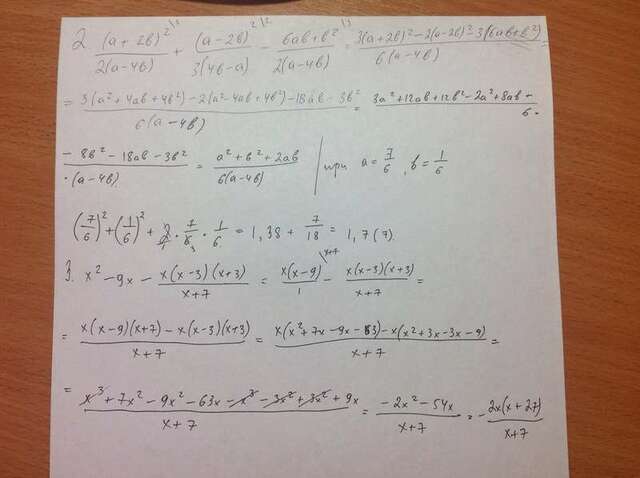 2. (a+2b)²/2(a-4b) + (a-2b)²/3(4b-a) - 6ab+b²/2(a-4b) = 3(a+2b)²-2(a-2b)²-3(6ab+b²)/6(a-4b) =
= 3(a²+4ab+4b²)-2(a²-4ab+4b²)-18ab-3b²/6(a-4b) = 3a²+12ab+12b²-2a²+8ab-/6·
-8b²-18ab-3b²/·(a-4b) = a²+b²+2ab/6(a-4b) | при a=7/6, b=1/6
(7/6)²+(1/6)²+2/1·7/6·1/6=1,38+7/18=1,7(7).
3. x²-9x-x(x-3)(x+3)/x+7 = x(x-9)/1 \x+7 - x(x-3)(x+3)/x+7 =
= x(x-9)(x+7)-x(x-3)(x+3)/x+7 = x(x²+7x-9x-63)-x(x²+3x-3x-9)/x+7 =
= x³+7x²-9x²-63x-x³-3x²+3x²+9x/x+7 = -2x²-54x/x+7 = -2x(x+27)/x+7